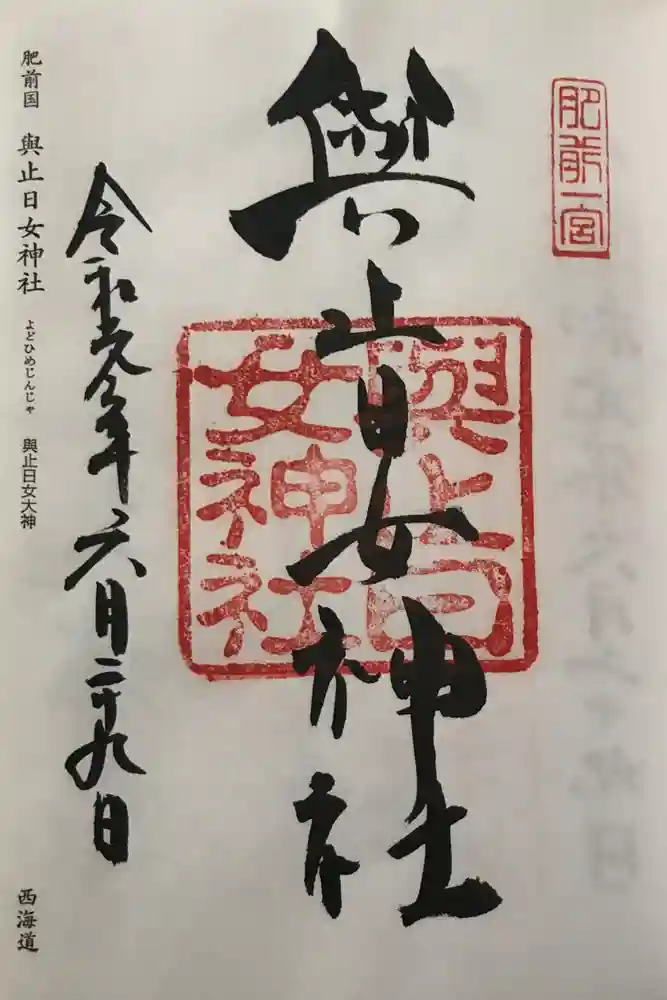 肥前一宮
與止日女神社
與止日
女神社
令和元年六月二十九日
肥前国 與止日女神社 よどひめじんじゃ 與止日女大神
西海道